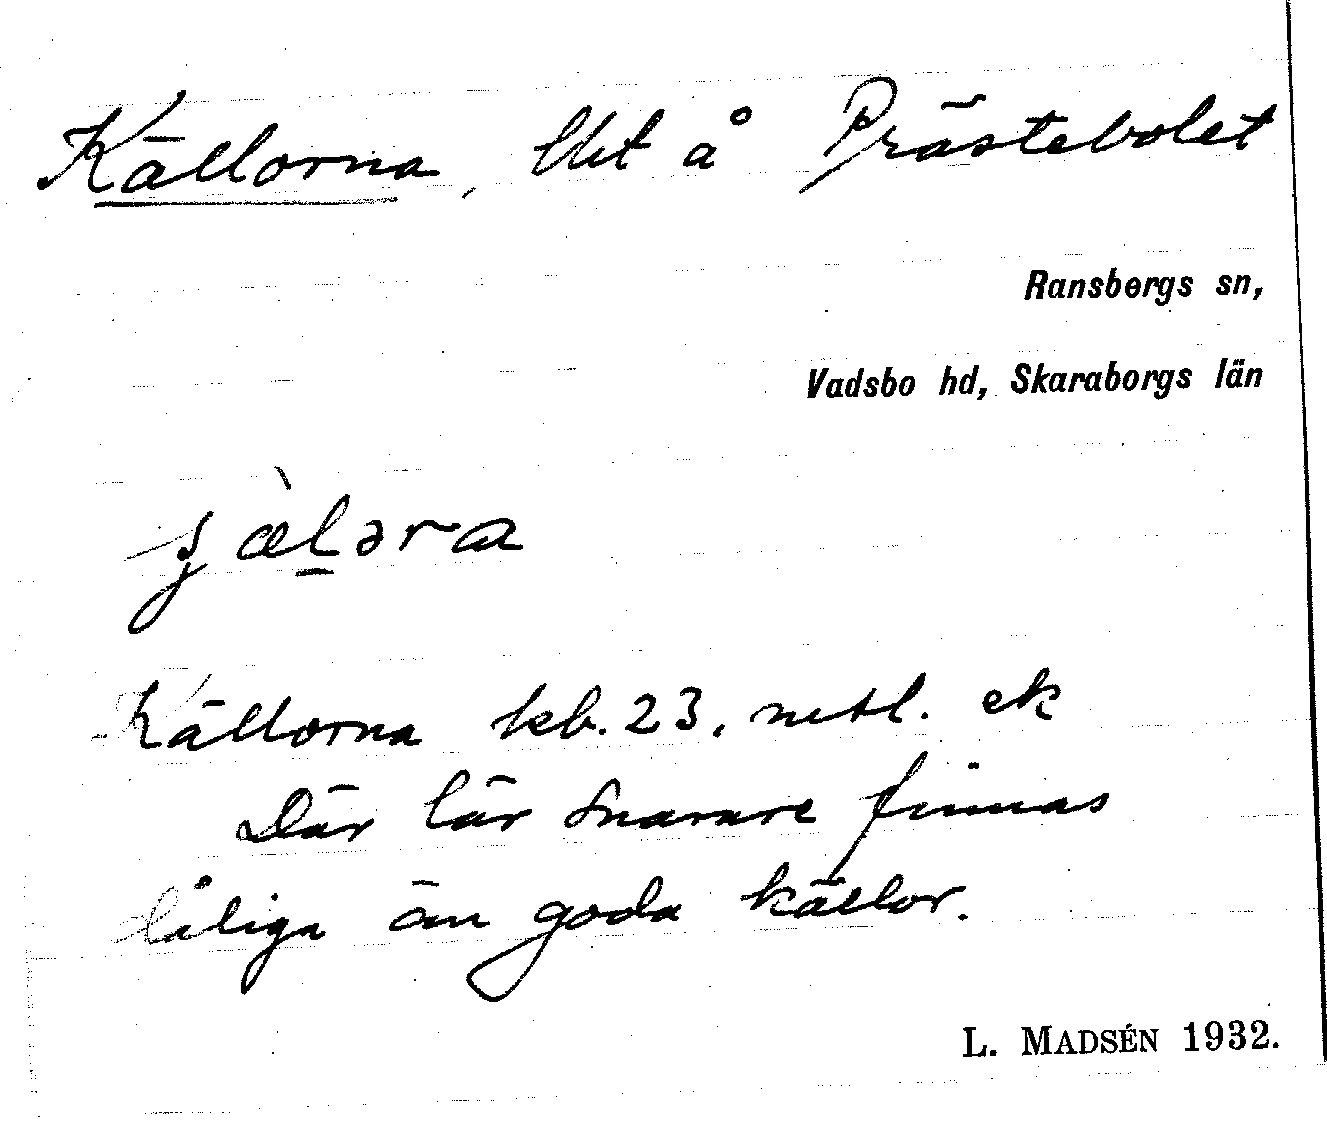 Källorna, lht å Prästebolet
Ransbergs sn,
Vadsbo hd, Skaraborgs län
Källorna kb. 23, mtl. ek
Där lär snarare finnas
dåliga än goda källor.
L. MADSÉN 1932.